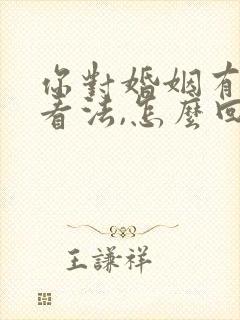 你對婚姻有
看法,怎麼回
王謙祥